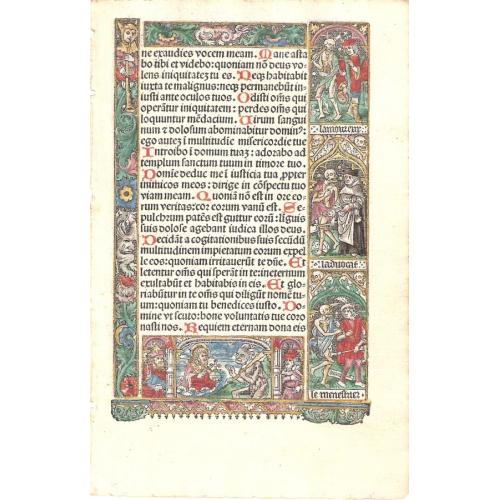 ne exaudies vocem meam. Mane asta
bo tibi et videbo: quoniam nō deus vo-
lens iniquitatez tu es. Neqz habitabit
iuxta te malignus: neqz permanebūt in-
iusti ante oculos tuos. Odisti oēs qui
operātur iniquitatem: perdes oēs qui
loquuntur mēdacium. Uirum sangui
num & dolosum abominabitur domin9:
ego autez ī multitudīe misericordie tue
Introibo ī domum tuaz: adorabo ad
templum sanctum tuum in timore tuo.
Domīe deduc me ī iusticia tua ꝓpter
inimicos meos: dirige in cōspectu tuo
viam meam. Quoniā nō est in ore eo-
rum veritas: cor eorum vanū est. Se-
pulchrum patēs est guttur eorū: līguis
suis dolose agebant iudica illos deus.
Decidāt a cogitationibus suis secūdū
multitudinem impietatum eorum expel
le eos: quoniam irritauerūt te dn̄e. Et
letentur oēs qui sperāt in te: in eternum
exultabūt et habitabis in eis. Et glo-
riabūtur in te oēs qui diligūt nomē tu-
um: quoniam tu benedices iusto. Do-
mine vt scuto: bone voluntatis tue coro
nasti nos. Requiem eternam dona eis
lamoureux.
ladvocat.
le menestrier.